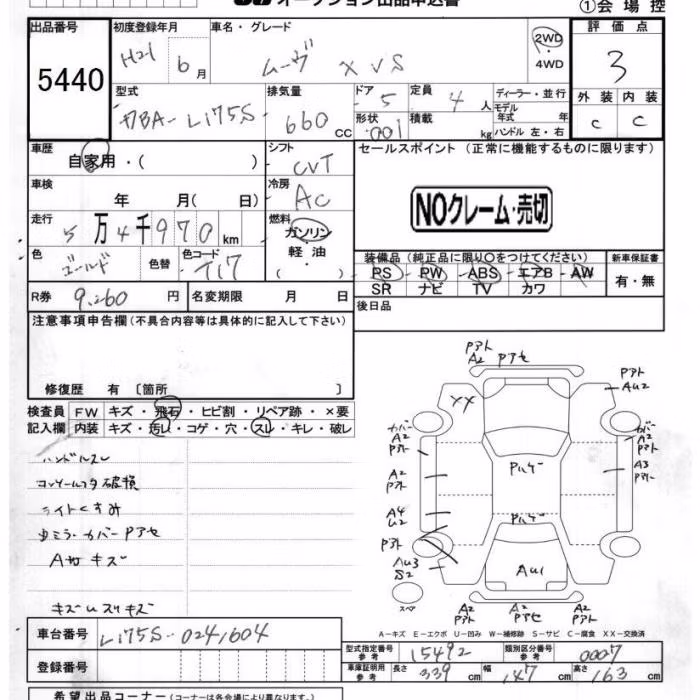 オークション出品申込書
①会場控
出品番号
5440
初度登録年月
H21 6月
車名・グレード
ムーヴ X VS
2WD・4WD
評価点
3
外装 内装
C C
型式
DBA-L175S
排気量
660 CC
ドア 5
形状 001
定員 4 人
積載 kg
ディーラー・並行
モデル年式 年
ハンドル 左・右
車歴
自家用・( )
シフト
CVT
セールスポイント (正常に機能するものに限ります)
NOクレーム・売切
車検
年 月( 日)
冷房
AC
走行
5万4千970km
燃料
ガソリン・軽油・( )
色
ゴールド
色替
色コード
T17
装備品 (純正品に限り○をつけてください)
新車保証書
PS PW ABS エアB AW
SR ナビ TV カワ
有・無
R券 9,260 円
名変期限 月 日
後日品
注意事項申告欄(不具合内容等は具体的に記入して下さい)
修復歴 有 〔箇所 〕
検査員記入欄
FW キズ・飛石・ヒビ割・リペア跡・×要
内装 キズ・汚し・コゲ・穴・スレ・キレ・破レ
ハンドルスレ
コンソールフタ破損
ライトくすみ
カバーPアセ
キズ
キズUスリキズ
PアトA2 Pアセ
Pアト AU2
XX
カバーA2Pアト
カバーA2Pアト
Pハゲ
A2Pアト
A3Pアト
A4U2
Pハゲ
Pアト
AU3S2
AU1
スペア
A2Pアト
A2Pアセ
A2Pアト
A-キズ E-エクボ U-凹み W-補修跡 S-サビ C-腐食 XX-交換済
車台番号
L175S-0241604
登録番号
型式指定番号参考 15492
類別区分番号参考 0007
車庫証明用参考 長さ 339cm 幅 147cm 高さ 163cm
希望出品コーナー (コーナーは各会場により異なります。)